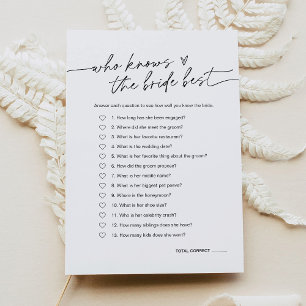 who knows
the bride best
Answer each question to see how well you know the bride.
1. How long has she been engaged?
2. Where did she meet the groom?
3. What is her favorite restaurant?
4. What is the wedding date?
5. What is her favorite thing about the groom?
6. How did the groom propose?
7. What is her middle name?
8. What is her biggest pet peeve?
9. Where is the honeymoon?
10. What is her shoe size?
11. Who is her celebrity crush?
12. How many siblings does she have?
13. How many kids does she want?
TOTAL CORRECT ______